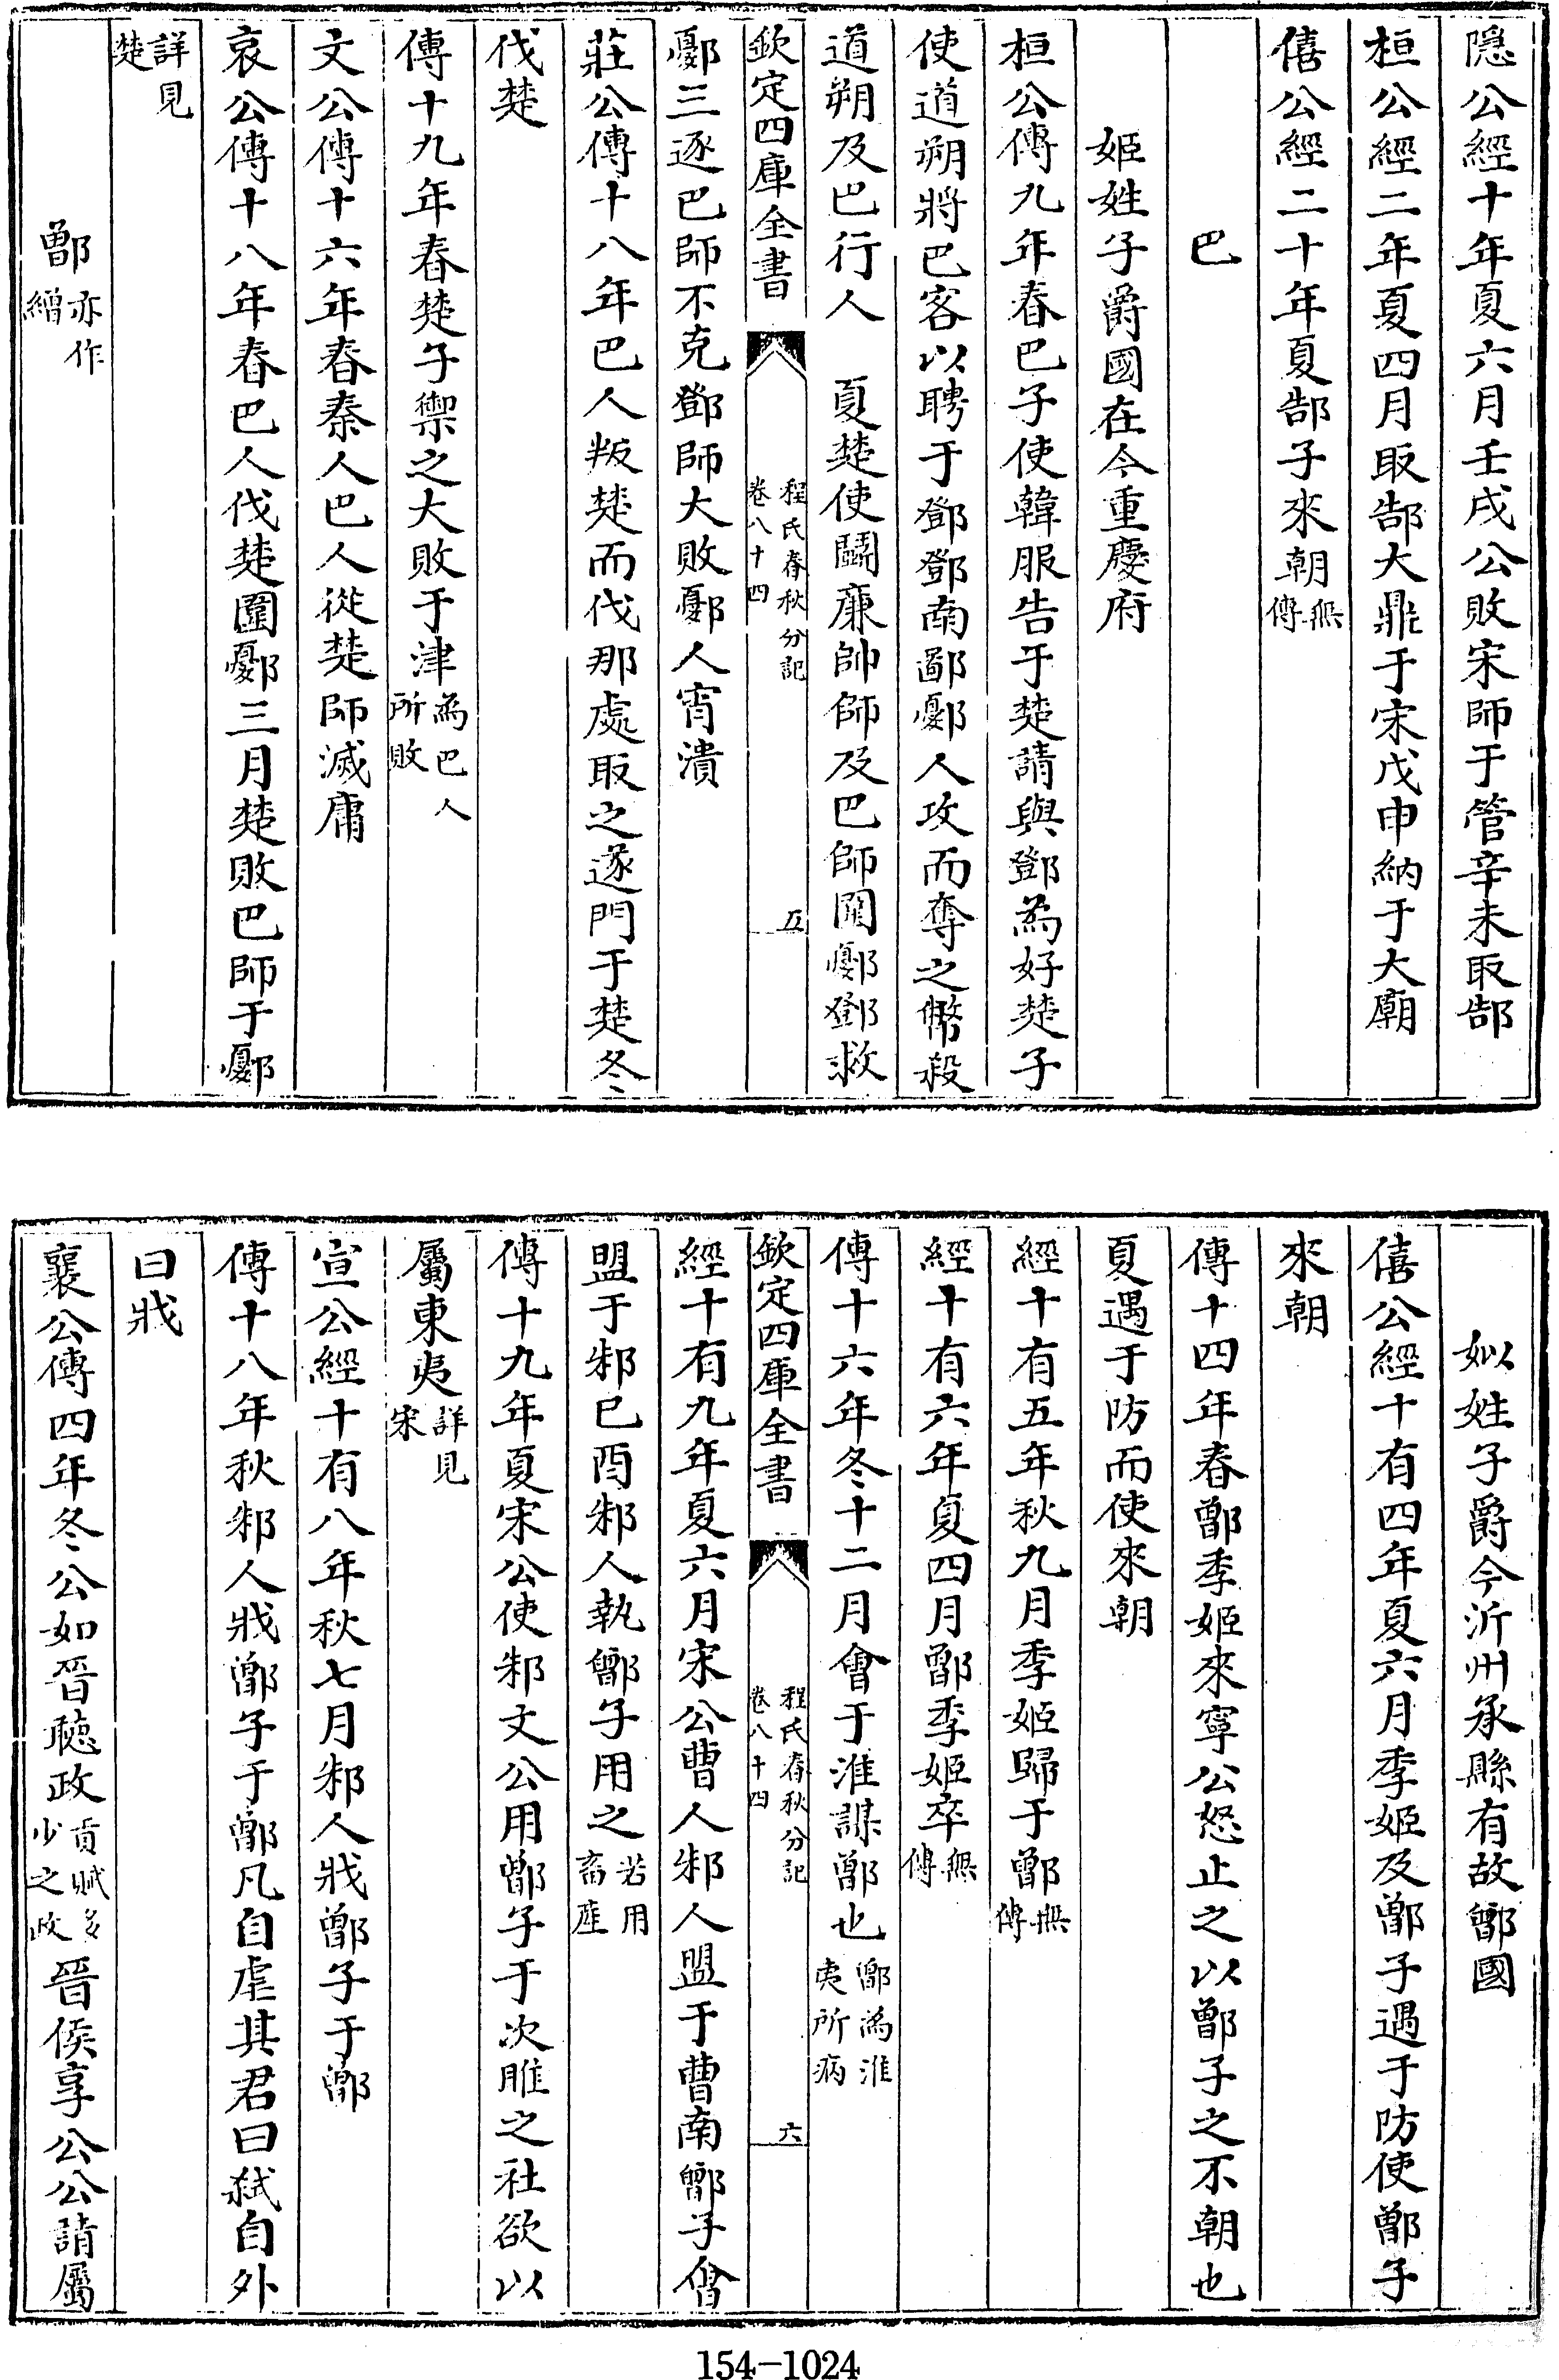 隠公經十年夏六月壬戌公敗宋師于管辛未取郜
桓公經二年夏四月取郜大鼎于宋戊申納于大廟
僖公經二十年夏郜子來朝無傳
巴
姬姓子爵國在今重慶府
桓公傳九年春巴子使韓服告于楚請與鄧為好楚子
使道朔將巴客以聘于鄧鄧南鄙鄾人攻而奪之幣殺
道朔及巴行人　夏楚使鬭廉帥師及巴師圍鄾鄧救
欽定四庫全書
程氏春秋分記
卷八十四
五
鄾三逐巴師不克鄧師大敗鄾人宵潰
莊公傳十八年巴人叛楚而伐那處取之遂門于楚冬
伐楚
傳十九年春楚子禦之大敗于津為巴人所敗
文公傳十六年春秦人巴人從楚師滅庸
哀公傳十八年春巴人伐楚圍鄾三月楚敗巴師于鄾
詳見楚
鄫亦作繒
姒姓子爵今沂州承縣有故鄫國
僖公經十有四年夏六月季姬及鄫子遇于防使鄫子
來朝
傳十四年春鄫季姬來寧公怒止之以鄫子之不朝也
夏遇于防而使來朝
經十有五年秋九月季姬歸于鄫無傳
經十有六年夏四月鄫季姬卒無傳
傳十六年冬十二月會于淮謀鄫也鄫為淮夷所病
欽定四庫全書
程氏春秋分記
卷八十四
六
經十有九年夏六月宋公曹人邾人盟于曹南鄫子會
盟于邾已酉邾人執鄫子用之若用畜產
傳十九年夏宋公使邾文公用鄫子于次睢之社欲以
屬東夷詳見宋
宣公經十有八年秋七月邾人戕鄫子于鄫
傳十八年秋邾人戕鄫子于鄫凡自虐其君曰弒自外
曰戕
襄公傳四年冬公如晉聽政貢賦多少之政晉侯享公公請屬
154-1024